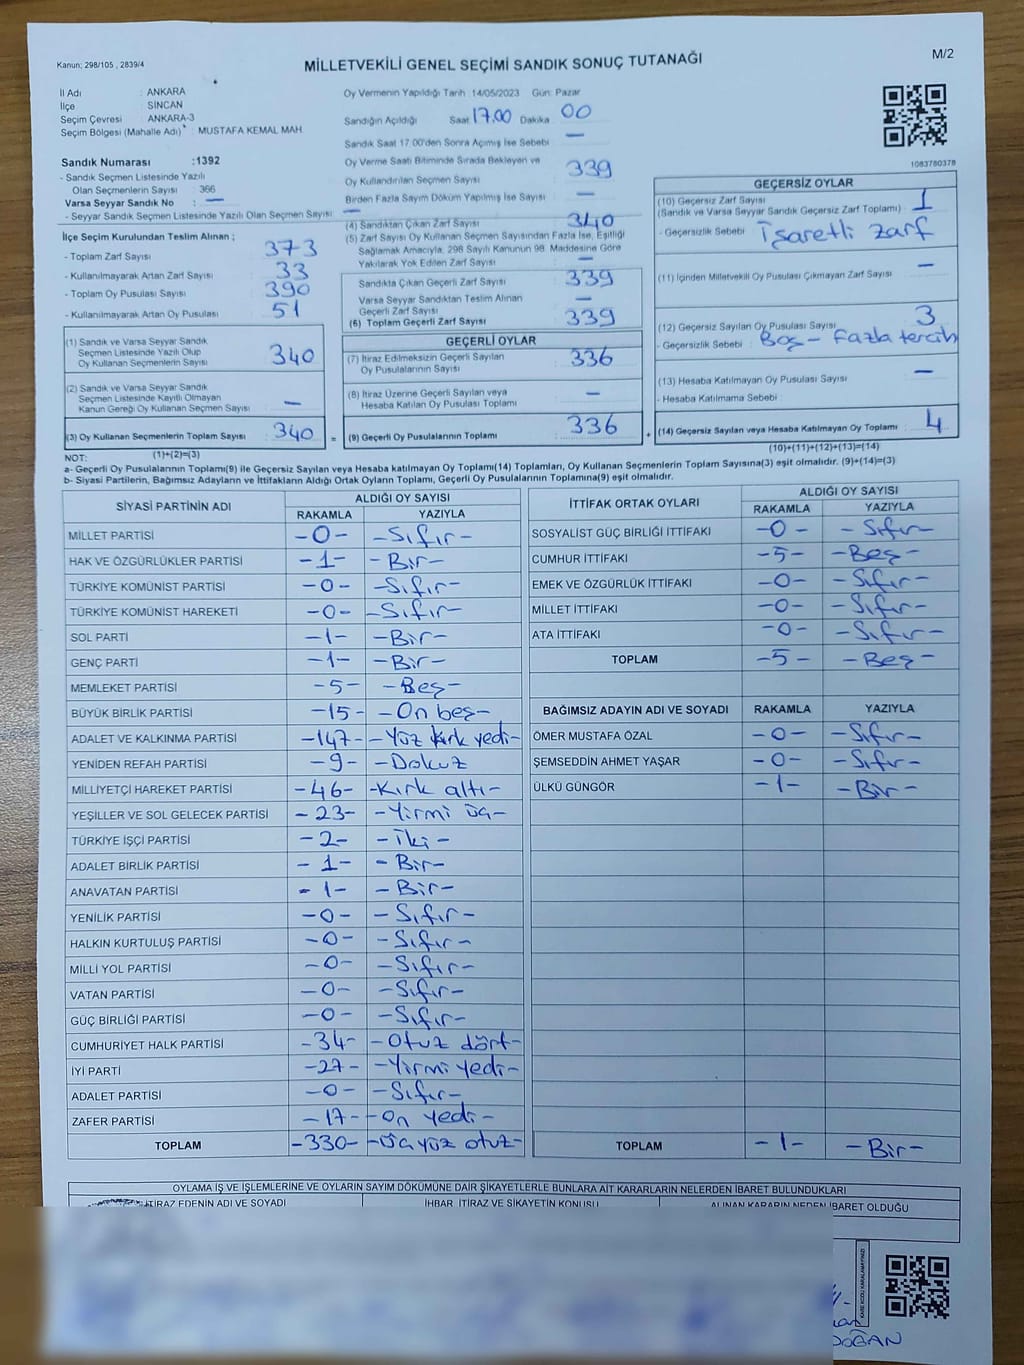 Kanun; 298/105 , 2839/4
MİLLETVEKİLİ GENEL SEÇİMİ SANDIK SONUÇ TUTANAĞI
M/2
İl Adı : ANKARA
İlçe : SİNCAN
Seçim Çevresi : ANKARA-3
Seçim Bölgesi (Mahalle Adı) : MUSTAFA KEMAL MAH.
Sandık Numarası :1392
- Sandık Seçmen Listesinde Yazılı
Olan Seçmenlerin Sayısı : 366
Varsa Seyyar Sandık No : —
- Seyyar Sandık Seçmen Listesinde Yazılı Olan Seçmen Sayısı : —
İlçe Seçim Kurulundan Teslim Alınan ;
- Toplam Zarf Sayısı : 373
- Kullanılmayarak Artan Zarf Sayısı : 33
- Toplam Oy Pusulası Sayısı : 390
- Kullanılmayarak Artan Oy Pusulası : 51
(1) Sandık ve Varsa Seyyar Sandık
Seçmen Listesinde Yazılı Olup
Oy Kullanan Seçmenlerin Sayısı : 340
(2) Sandık ve Varsa Seyyar Sandık
Seçmen Listesinde Kayıtlı Olmayan
Kanun Gereği Oy Kullanan Seçmen Sayısı : —
(3) Oy Kullanan Seçmenlerin Toplam Sayısı : 340 =
(1)+(2)=(3)
Oy Vermenin Yapıldığı Tarih 14/05/2023 Gün: Pazar
Sandığın Açıldığı Saat 17.00 Dakika 00
Sandık Saat 17.00'den Sonra Açılmış İse Sebebi —
Oy Verme Saati Bitiminde Sırada Bekleyen ve
Oy Kullandırılan Seçmen Sayısı : 339
Birden Fazla Sayım Döküm Yapılmış İse Sayısı : —
(4) Sandıktan Çıkan Zarf Sayısı : 340
(5) Zarf Sayısı Oy Kullanan Seçmen Sayısından Fazla İse, Eşitliği
Sağlamak Amacıyla, 298 Sayılı Kanunun 98. Maddesine Göre
Yakılarak Yok Edilen Zarf Sayısı : —
Sandıkta Çıkan Geçerli Zarf Sayısı : 339
Varsa Seyyar Sandıktan Teslim Alınan
Geçerli Zarf Sayısı : —
(6) Toplam Geçerli Zarf Sayısı : 339
GEÇERLİ OYLAR
(7) İtiraz Edilmeksizin Geçerli Sayılan
Oy Pusulalarının Sayısı : 336
(8) İtiraz Üzerine Geçerli Sayılan veya
Hesaba Katılan Oy Pusulası Toplamı : —
(9) Geçerli Oy Pusulalarının Toplamı : 336 +
1083780378
GEÇERSİZ OYLAR
(10) Geçersiz Zarf Sayısı : 1
(Sandık ve Varsa Seyyar Sandık Geçersiz Zarf Toplamı)
- Geçersizlik Sebebi : İşaretli zarf
(11) İçinden Milletvekili Oy Pusulası Çıkmayan Zarf Sayısı : —
(12) Geçersiz Sayılan Oy Pusulası Sayısı : 3
- Geçersizlik Sebebi : Boş - Fazla tercih
(13) Hesaba Katılmayan Oy Pusulası Sayısı : —
- Hesaba Katılmama Sebebi :
(14) Geçersiz Sayılan veya Hesaba Katılmayan Oy Toplamı : 4
(10)+(11)+(12)+(13)=(14)
NOT:
a- Geçerli Oy Pusulalarının Toplamı(9) ile Geçersiz Sayılan veya Hesaba katılmayan Oy Toplamı(14) Toplamları, Oy Kullanan Seçmenlerin Toplam Sayısına(3) eşit olmalıdır. (9)+(14)=(3)
b- Siyasi Partilerin, Bağımsız Adayların ve İttifakların Aldığı Ortak Oyların Toplamı, Geçerli Oy Pusulalarının Toplamına(9) eşit olmalıdır.
SİYASİ PARTİNİN ADI ALDIĞI OY SAYISI
RAKAMLA YAZIYLA
MİLLET PARTİSİ -0- -Sıfır-
HAK VE ÖZGÜRLÜKLER PARTİSİ -1- -Bir-
TÜRKİYE KOMÜNİST PARTİSİ -0- -Sıfır-
TÜRKİYE KOMÜNİST HAREKETİ -0- -Sıfır-
SOL PARTİ -1- -Bir-
GENÇ PARTİ -1- -Bir-
MEMLEKET PARTİSİ -5- -Beş-
BÜYÜK BİRLİK PARTİSİ -15- -On beş-
ADALET VE KALKINMA PARTİSİ -147- -Yüz kırk yedi-
YENİDEN REFAH PARTİSİ -9- -Dokuz
MİLLİYETÇİ HAREKET PARTİSİ -46- -Kırk altı-
YEŞİLLER VE SOL GELECEK PARTİSİ -23- -Yirmi üç-
TÜRKİYE İŞÇİ PARTİSİ -2- -İki-
ADALET BİRLİK PARTİSİ -1- -Bir-
ANAVATAN PARTİSİ -1- -Bir-
YENİLİK PARTİSİ -0- -Sıfır-
HALKIN KURTULUŞ PARTİSİ -0- -Sıfır-
MİLLİ YOL PARTİSİ -0- -Sıfır-
VATAN PARTİSİ -0- -Sıfır-
GÜÇ BİRLİĞİ PARTİSİ -0- -Sıfır-
CUMHURİYET HALK PARTİSİ -34- -Otuz dört-
İYİ PARTİ -27- -Yirmi yedi-
ADALET PARTİSİ -0- -Sıfır-
ZAFER PARTİSİ -17- -On yedi-
TOPLAM -330- -Üçyüz otuz-
İTTİFAK ORTAK OYLARI ALDIĞI OY SAYISI
RAKAMLA YAZIYLA
SOSYALİST GÜÇ BİRLİĞİ İTTİFAKI -0- -Sıfır-
CUMHUR İTTİFAKI -5- -Beş-
EMEK VE ÖZGÜRLÜK İTTİFAKI -0- -Sıfır-
MİLLET İTTİFAKI -0- -Sıfır-
ATA İTTİFAKI -0- -Sıfır-
TOPLAM -5- -Beş-
BAĞIMSIZ ADAYIN ADI VE SOYADI RAKAMLA YAZIYLA
ÖMER MUSTAFA ÖZAL -0- -Sıfır-
ŞEMSEDDİN AHMET YAŞAR -0- -Sıfır-
ÜLKÜ GÜNGÖR -1- -Bir-
TOPLAM -1- -Bir-
OYLAMA İŞ VE İŞLEMLERİNE VE OYLARIN SAYIM DÖKÜMÜNE DAİR ŞİKAYETLERLE BUNLARA AİT KARARLARIN NELERDEN İBARET BULUNDUKLARI
İTİRAZ EDENİN ADI VE SOYADI İHBAR İTİRAZ VE ŞİKAYETİN KONUSU ALINAN KARARIN NEDEN İBARET OLDUĞU
DOĞAN